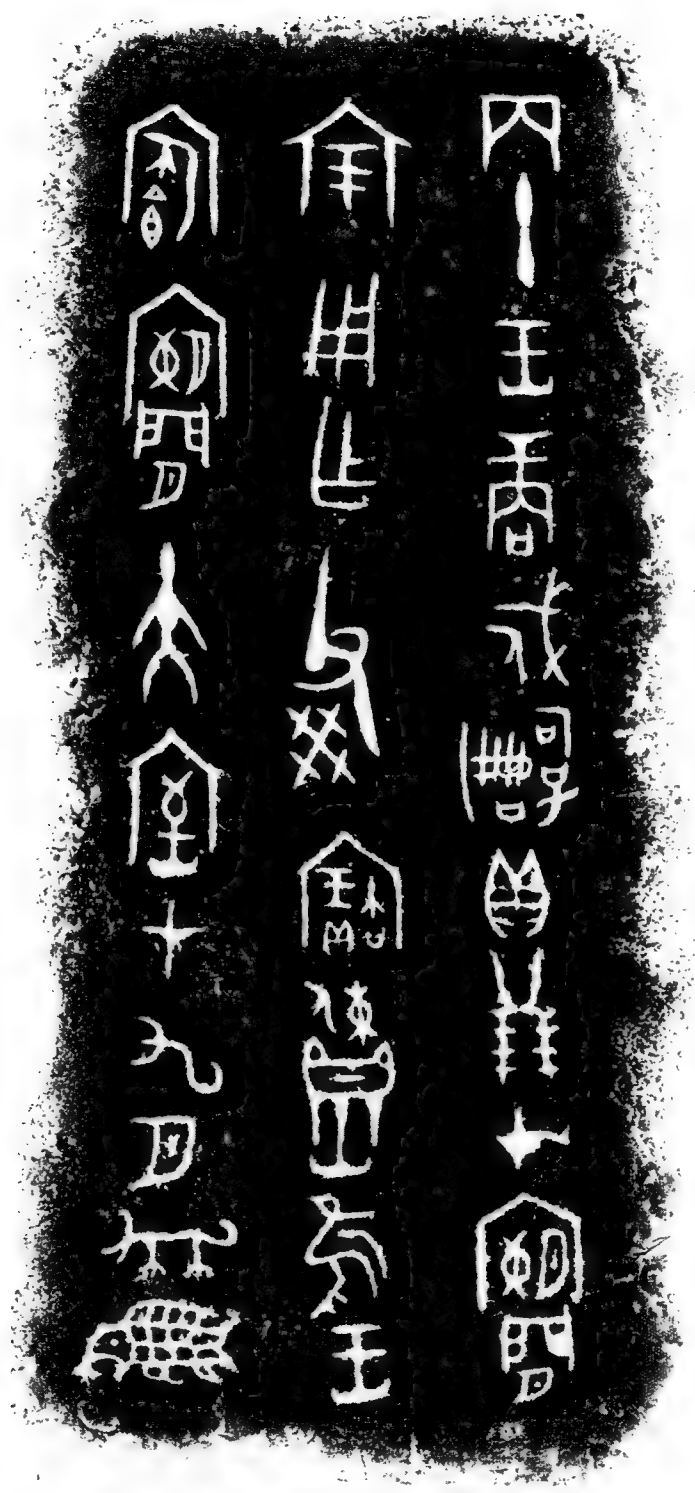 丙午王商戍嗣子貝廿朋才闌
宗用乍父癸寶鼎隹王
闌大室才九月犬魚